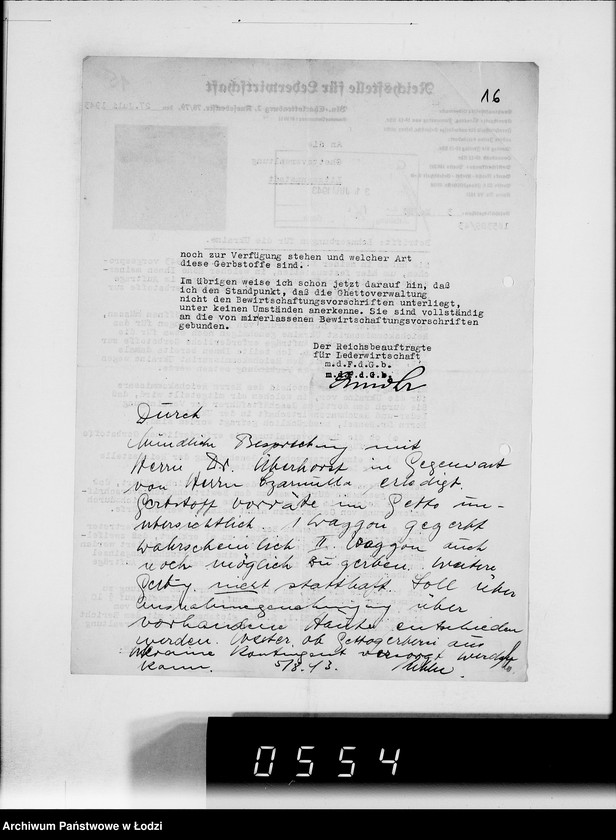 16
noch zur Verfügung stehen und welcher Art
diese Gerbstoffe sind.
Im übrigen weise ich schon jetzt darauf hin, daß
ich den Standpunkt, daß die Ghettoverwaltung
nicht den Bewirtschaftungsvorschriften unterliegt,
unter keinen Umständen anerkenne. Sie sind vollständig
an die von mirerlassenen Bewirtschaftungsvorschriften
gebunden.
Der Reichsbeauftragte
für Lederwirtschaft
m.d.F.d.G.b.
m.d.F.d.G.b.
Durch
Mündliche Besprechung mit
Herrn Dr. Überhorst in Gegenwart
von Herrn Czarnulla erledigt.
Gerbstoff vorräte im Getto un-
übersichtlich. 1 Waggon gegerbt
wahrscheinlich II. Waggon auch
noch möglich zu gerben. Weitere
nicht statthaft. Soll über
Ausnahmegenehmigung über
vorhandene Häute entschieden
werden. Weiter ob Gettogerberei aus
Ukraine Kontingent versorgt werden
kann. 5/8.43.
0554
Archiwum Państwowe w Łodzi